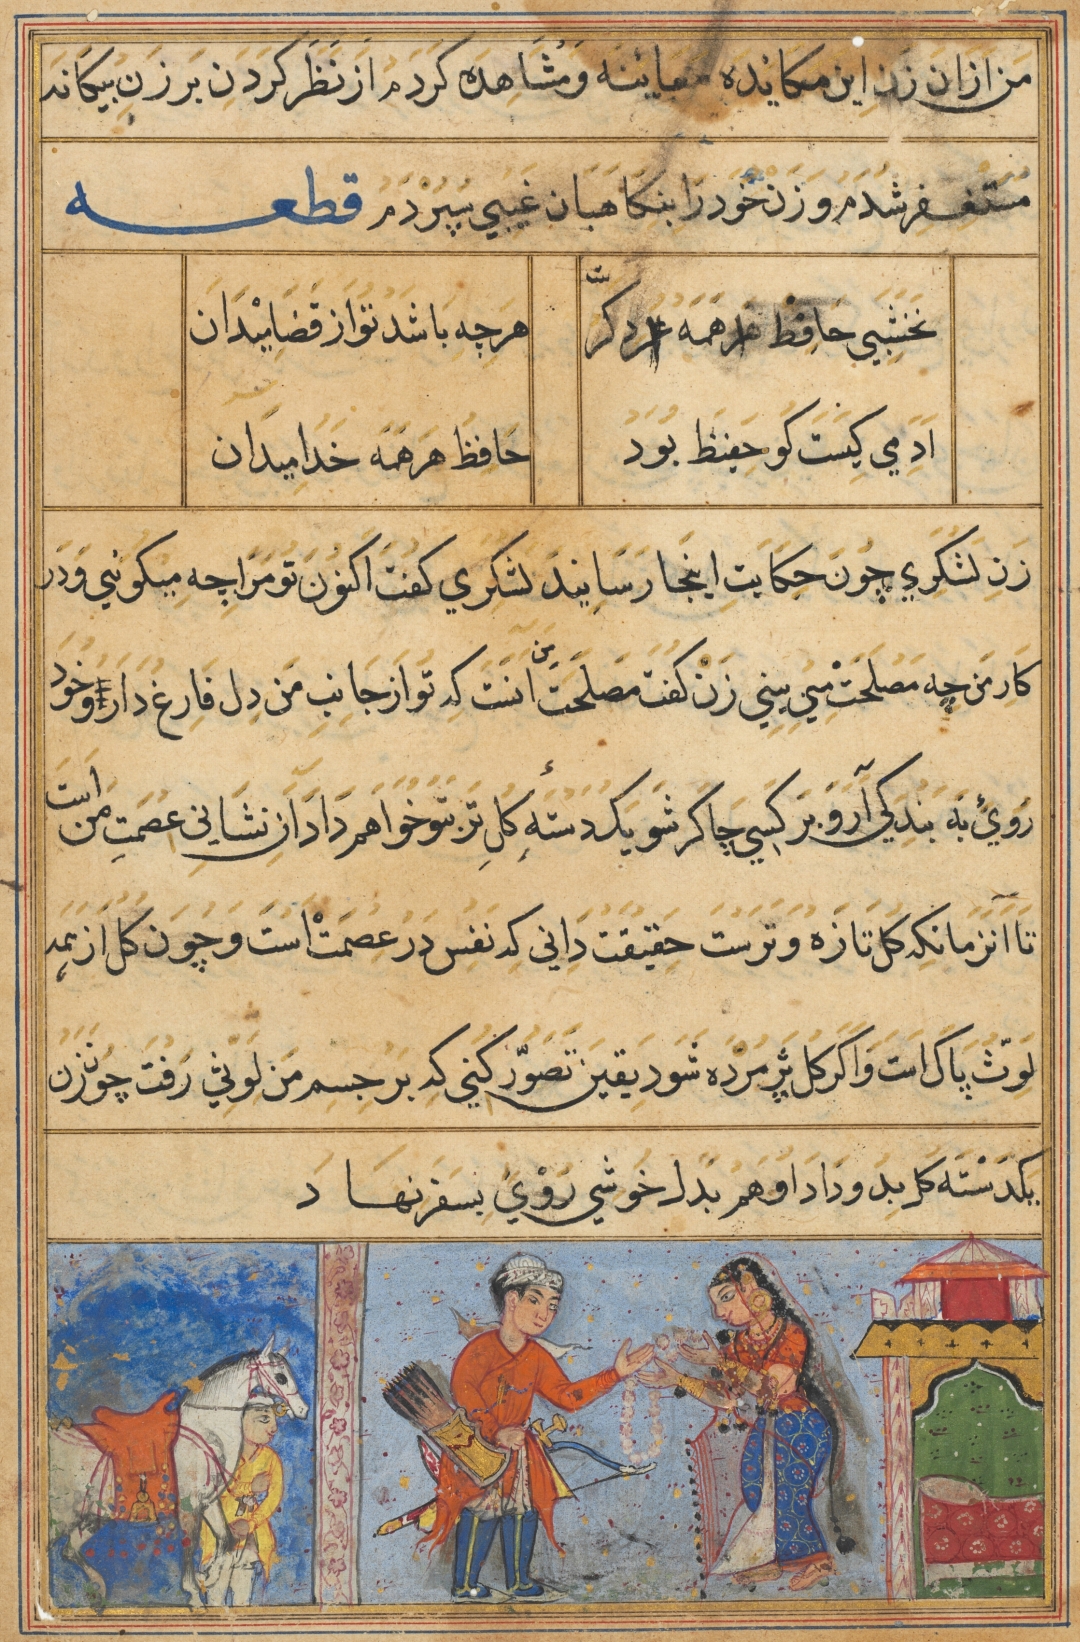 من ازان زن این مکایده معاینه و مشاهده کردم از نظر کردن بر زن بیکانه
مستغفر شدم و زن خود را بنکاهبان غیبی سپردم قطعه
نخشبی حافظ همه دکرست هرچه باشد تو از قضا میدان
ادمی کیست کو حفیظ بود حافظ هر همه خدا میدان
زن لشکری چون حکایت اینجا رسانید لشکری کفت اکنون تو مرا چه میکوئی و در
کار من چه مصلحت می بینی زن کفت مصلحت من انست که تو از جانب من دل فارغ دار و خود
روی به بندکی آر و بر کسی چاکر شو یک دستهٔ کل تر بتو خواهم داد آن نشانی عصمت من است
تا آنزمانکه کل تازه و ترست حقیقت دانی که نفس در عصمت است و چون کل از همه
لوث پاک است و اکر کل پژمرده شود یقین تصور کنی که بر جسم من لوثی رفت چون زن
یکدسته کل بدو داد او هم بدل خوشی روی بسفر نهاد